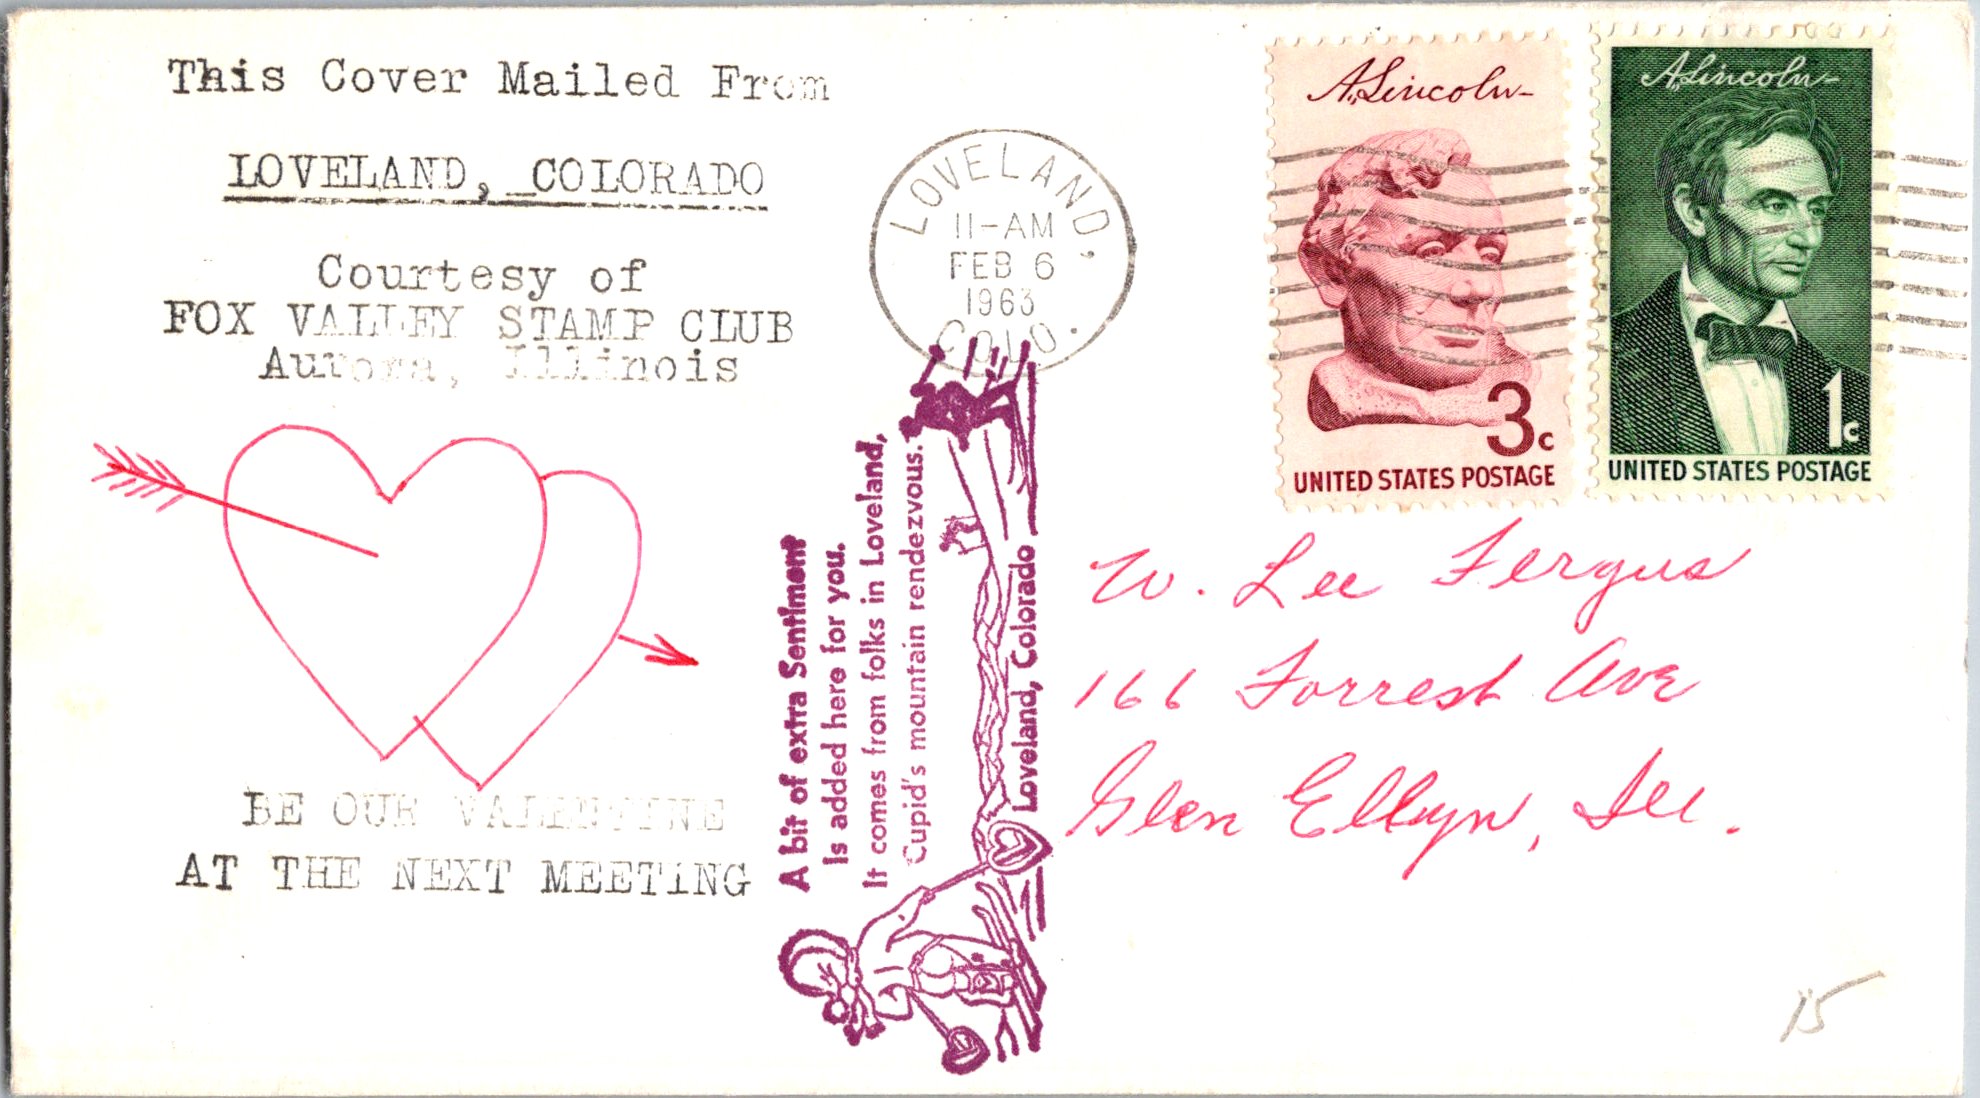 This Cover Mailed From
LOVELAND, COLORADO
Courtesy of
FOX VALLEY STAMP CLUB
Aurora, Illinois
BE OUR VALENTINE
AT THE NEXT MEETING
LOVELAND,
11-AM
FEB 6
1963
COLO.
A bit of extra Sentiment
Is added here for you.
It comes from folks in Loveland,
Cupid's mountain rendezvous.
Loveland, Colorado
A. Lincoln
3c
UNITED STATES POSTAGE
A. Lincoln
1c
UNITED STATES POSTAGE
W. Lee Fergus
166 Forrest Ave
Glen Ellyn, Ill.
15